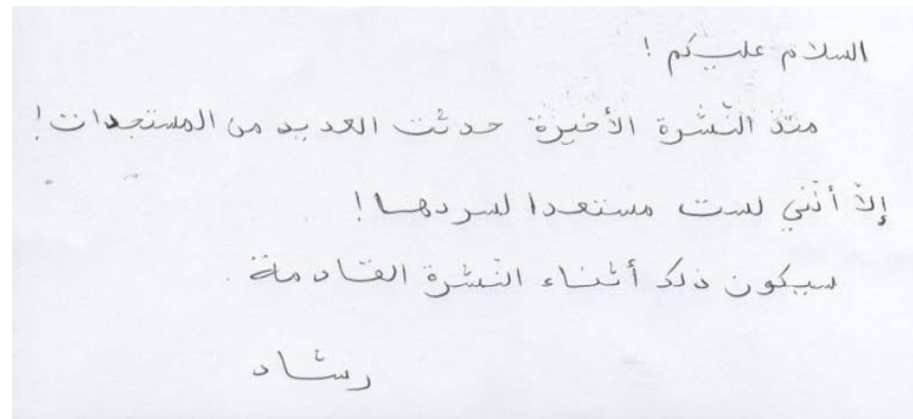 السلام عليكم !
منذ النّشرة الأخيرة حدثت العديد من المستجدات !
إلاّ أنّني لست مستعدا لسردها !
سيكون ذلك أثناء النشرة القادمة .
رشاد